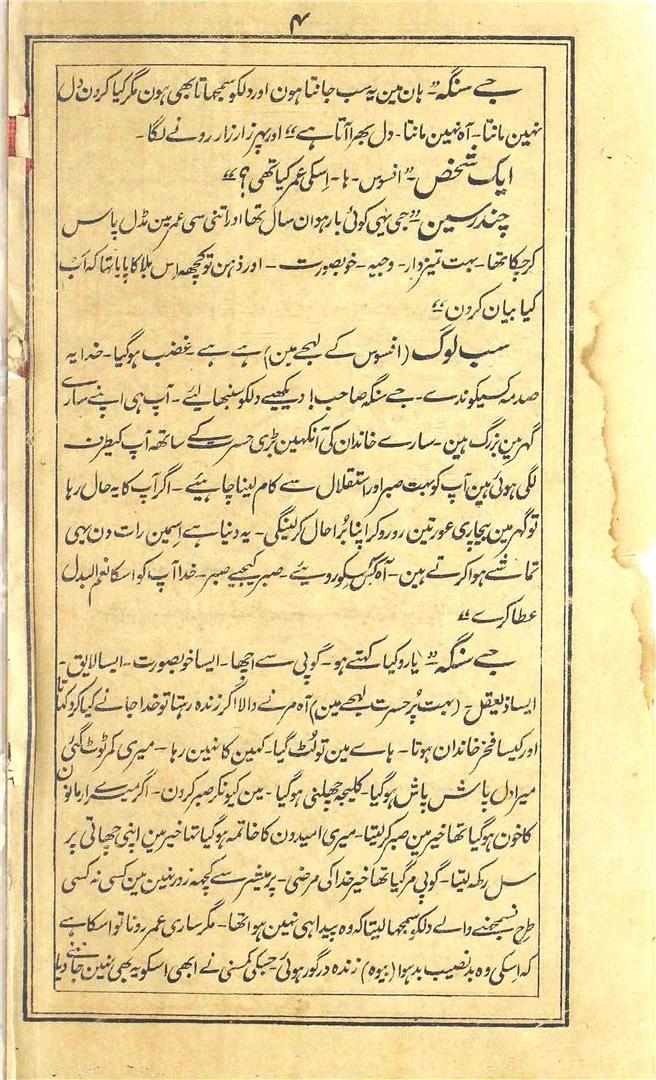 ۴
جے سنگہ ”۔ ہان مین یہ سب جانتا ہون اور دلکو سمجھاتا بھی ہون مگر کیا کرون دل
نہین مانتا۔ آہ نہین مانتا۔ دل بھرا آتا ہے“ اور پہر زار زار رونے لگا۔
ایک شخص ۔” افسوس۔ ہا۔ اِسکی عمر کیا تھی؟“
چندر سین ”۔ جی یہی کوئی بارہوان سال تھا اور اتنی سی عمر مین مڈل پاس
کرچکا تھا۔ بہت تمیزدار۔ وجیہ۔ خوبصورت۔ اور ذہن تو کچھہ اِس بلا کا پایا تہا کہ اَب
کیا بیان کرون“
سب لوگ (افسوس کے لہجے مین) ہے ہے غضب ہوگیا۔ خدا یہ
صدمہ کسیکو ندے۔ جے سنگہ صاحب! دیکھیے دلکو سنبھالئے۔ آپ ہی اپنے سارے
گہر مین بزرگ ہین۔ سارے خاندان کی آنکھین بڑی حسرت کے ساتھہ آپ کیطرف
لگی ہوئی ہین آپ کو بہت صبر اور استقلال سے کام لینا چاہیئے۔ اگر آپ کا یہ حال رہا
تو گہر مین بیچاری عورتین رو رو کر اپنا بُرا حال کرلینگی۔ یہ دنیا ہے اِسمین رات دن یہی
تماشے ہوا کرتے ہین۔ آہ کِس کِسکو رویئے۔ صبر کیجیے صبر۔ خدا آپ کو اسکا نعم البدل
عطا کرے“
جے سنگہ ”۔ یارو کیا کہتے ہو۔ گوپی سے اچھا۔ ایسا خوبصورت۔ ایسا لایق۔
ایسا ذیعقل۔ (بہت پُر حسرت لہجے مین) آہ مرنے والا! گر زندہ رہتا تو خدا جانے کیا کر دکہاتا
اور کیسا فخرِ خاندان ہوتا۔ ہاے مین تو لُٹ گیا۔ کہین کا نہین رہا۔ میری کمر ٹوٹ گئی
میرا دل پاش پاش ہوگیا۔ کلیجہ چھلنی ہوگیا۔ مین کیونکر صبر کرون۔ اگر میرے ارمانون
کا خون ہوگیا تھا خیر مین صبر کرلیتا۔ میری امیدون کا خاتمہ ہوگیا تہا خیر مین اپنی چھاتی پر
سل رکھہ لیتا۔ گوپی مر گیا تھا خیر خدا کی مرضی۔ پرمیشر سے کچھہ زور نہین مین کسی نہ کسی
طرح نسمجھنے والے دلکو سمجھا لیتا کہ وہ پیدا ہی نہین ہوا تھا۔ مگر ساری عمر رونا تو اسکا ہے
کہ اِسکی وہ بدنصیب بدہوا (بیوہ) زندہ درگور ہوئی۔ جسکی کمسنی نے ابھی اسکو یہ بھی نہین جاننے دیا